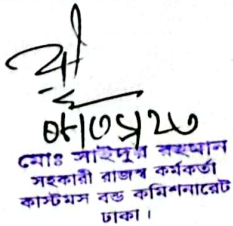 মোঃ সাইদুর রহমান
সহকারী রাজস্ব কর্মকর্তা
কাস্টমস বন্ড কমিশনারেট
ঢাকা।